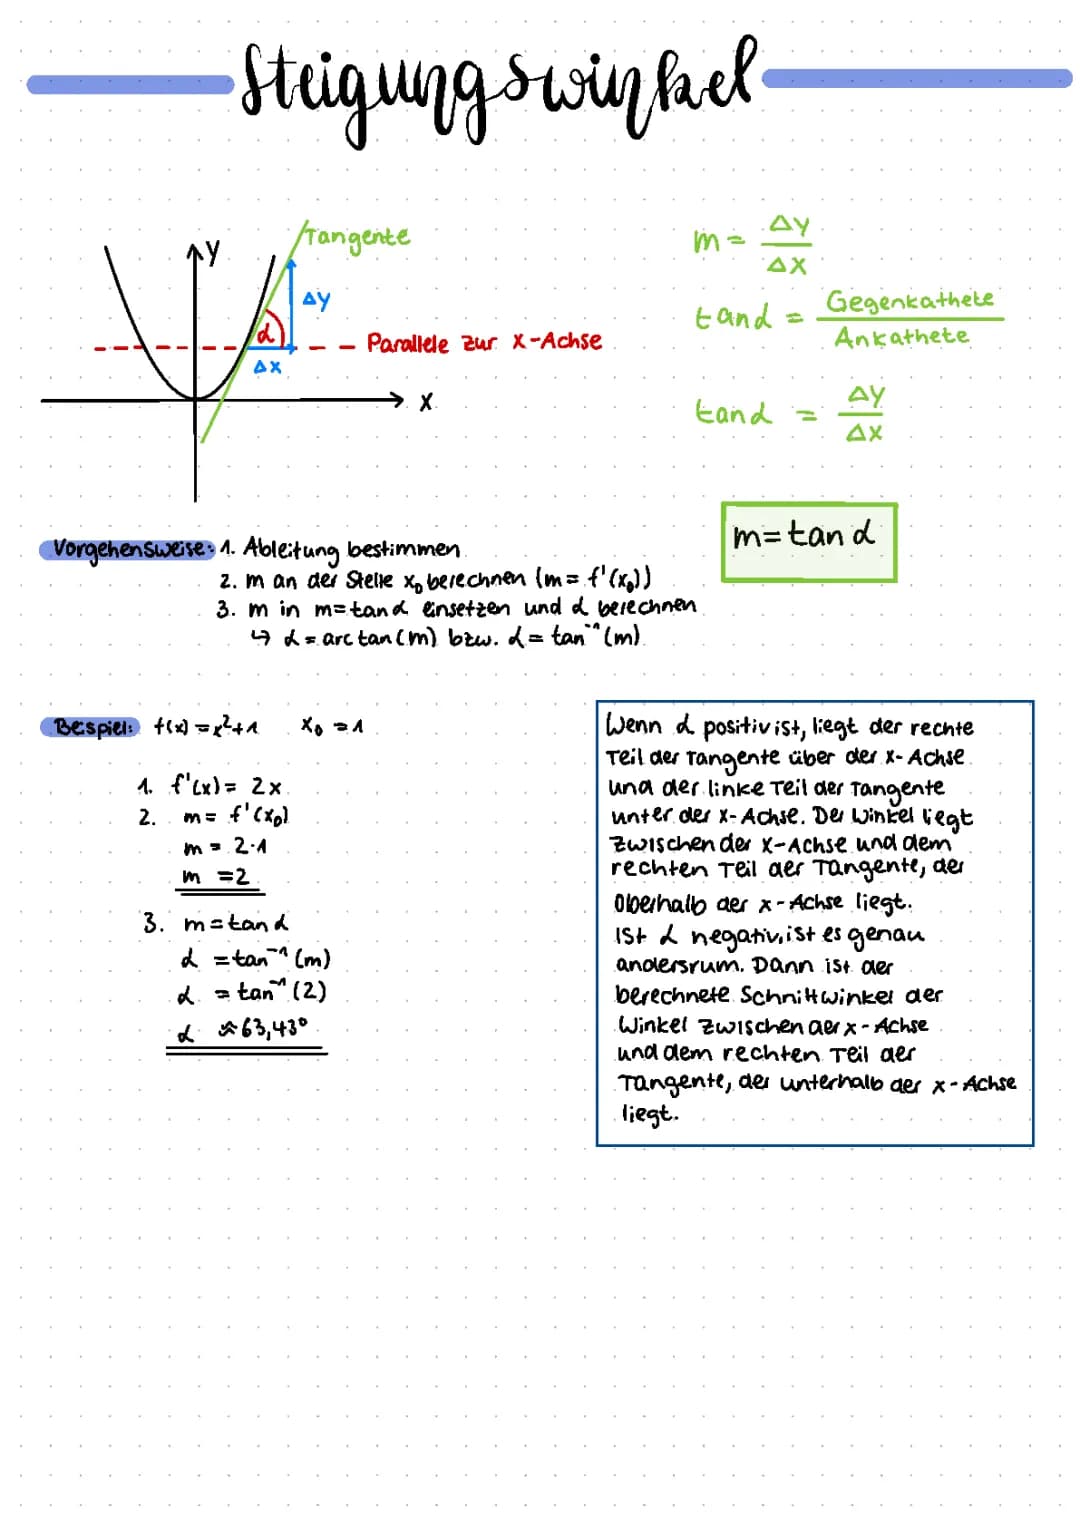 Steigungswinkel
y
Tangente
Δy
α
Parallele zur x-Achse
Δx
x
m = Δy/Δx
tanα = Gegenkathete/Ankathete
tanα = Δy/Δx
m = tanα
Vorgehensweise: 1. Ableitung bestimmen
2. m an der Stelle x₀ berechnen (m = f'(x₀))
3. m in m = tanα einsetzen und α berechnen
↳ α = arctan(m) bzw. α = tan⁻¹(m)
Beispiel: f(x) = x²+1 x₀ = 1
1. f'(x) = 2x
2. m = f'(x₀)
m = 2·1
m = 2
3. m = tanα
α = tan⁻¹(m)
α = tan⁻¹(2)
α ≈ 63,43°
Wenn α positiv ist, liegt der rechte
Teil der Tangente über der x-Achse
und der linke Teil der Tangente
unter der x-Achse. Der Winkel liegt
zwischen der x-Achse und dem
rechten Teil der Tangente, der
oberhalb der x-Achse liegt.
Ist α negativ, ist es genau
andersrum. Dann ist der
berechnete Schnittwinkel der
Winkel zwischen der x-Achse
und dem rechten Teil der
Tangente, der unterhalb der x-Achse
liegt.